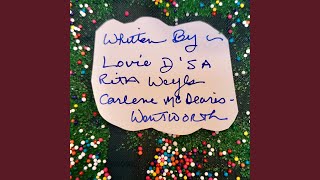 Written By
Lovie D'SA
Rita Weyls
Carlene McDearis-
Wentworth